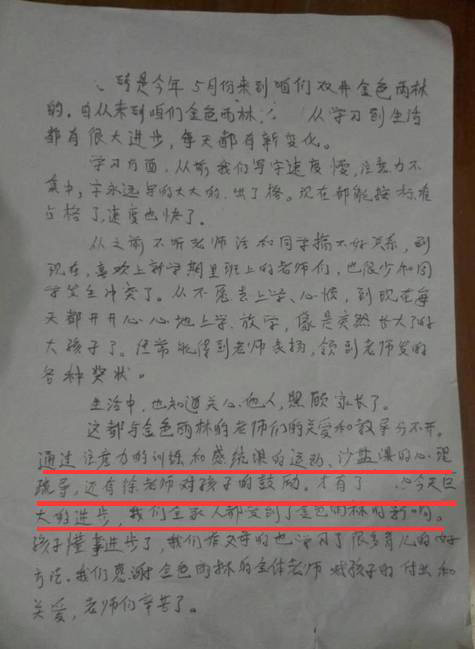 是今年5月份来到咱们双井金色雨林
的。自从来到咱们金色雨林, 从学习到生活
都有很大进步，每天都有新变化。
学习方面，从前我们写字速度慢，注意力不
集中，字永远写的大大的，出了格。现在都能按标准
占格了，速度也快了。
从之前不听老师话和同学搞不好关系，到
现在，喜欢上新学期里班上的老师们，也很少和同
学发生冲突了。从不愿去上学、心烦，到现在每
天都开开心心地上学、放学，像是突然长大了的
大孩子了。经常能得到老师表扬，领到老师发的
各种奖状。
生活中，也知道关心他人，照顾家长了。
这都与金色雨林的老师们的关爱和教导分不开。
通过注意力的训练和感统课的运动、沙盘课的心理
疏导，还有徐老师对孩子的鼓励。才有了 今天巨
大的进步，我们全家人都受到了金色雨林的影响。
孩子懂事进步了，我们作父母的也学习了很多育儿的好
方法。我们感谢金色雨林的全体老师对孩子的付出和
关爱，老师们辛苦了。